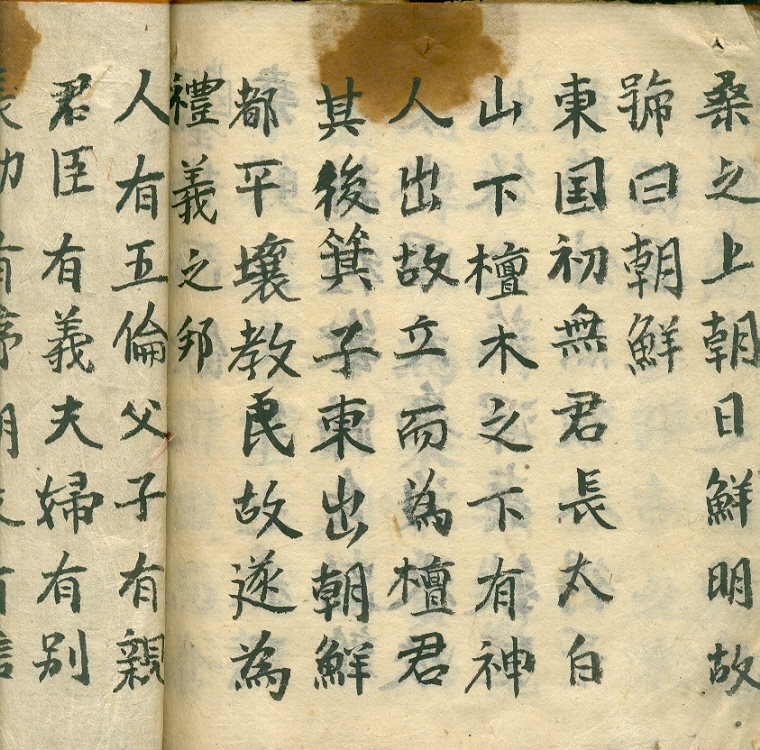 桑之上朝日鮮明故
號曰朝鮮
東国初無君長太白
山下檀木之下有神
人出故立而為檀君
其後箕子東出朝鮮
都平壤教民故遂為
禮義之邦
人有五倫父子有親
君臣有義夫婦有别
長幼有序朋友有信